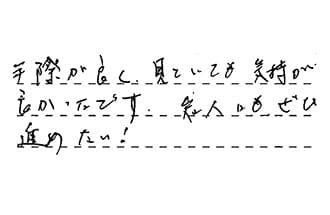 手際が良く、見ていても気持が
良かったです。知人にもぜひ
進めたい!